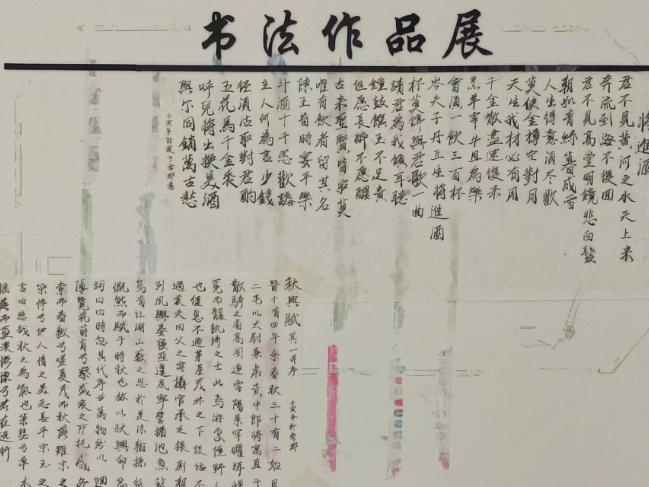 书法作品展
将進酒
君不見黄河之水天上来
奔流到海不復回
君不見高堂明鏡悲白髮
朝如青絲暮成雪
人生得意须尽歡
莫使金樽空對月
天生我材必有用
千金散盡還復来
烹羊宰牛且為樂
會須一飲三百杯
岑夫子丹丘生将進酒
杯莫停與君歌一曲
請君為我傾耳聽
鐘鼓饌玉不足貴
但愿長醉不愿醒
古来聖賢皆寂莫
惟有飲者留其名
陳王昔時宴平樂
斗酒十千恣歡謔
主人何為言少錢
径須沽取對君酌
五花馬千金裘
呼兒将出换美酒
與尔同銷萬古愁
秋興賦 其一并序
晋十有四年余春秋三十有二始見
二毛以太尉掾兼虎賁中郎将寓直于
散騎之省高閣連雲陽景罕曜珥蝉
冕而襲紈綺之士此焉游處僕野人
也偃息不過茅屋茂林之下談話不
過農夫田父之客攝官承乏猥厠朝
列夙興晏寢匪遑底寧譬猶池魚
鳥有江湖山薮之思於是染翰操紙
慨然而賦于時秋也故以秋興命篇
詞曰四時忽其代序兮萬物紛以迴
薄覽花蒔育兮察盛衰之所托感冬
索而春敷兮嗟夏茂而秋落雖末之
榮悴兮伊人情之美惡善乎宋玉之
言曰悲哉秋之為氣也萧瑟兮草木
摇落而變衰憭慄兮若在遠行